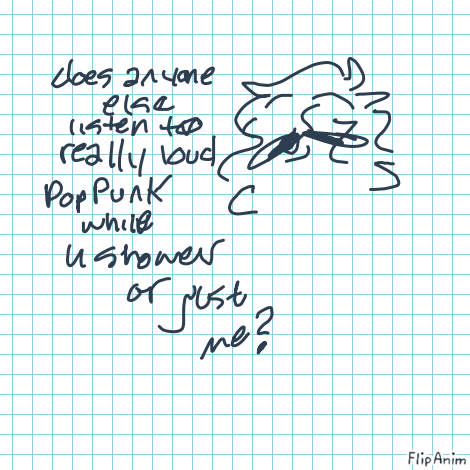 does anyone
else
listen too
really loud
Pop Punk
while
u shower
or just
me?
FlipAnim